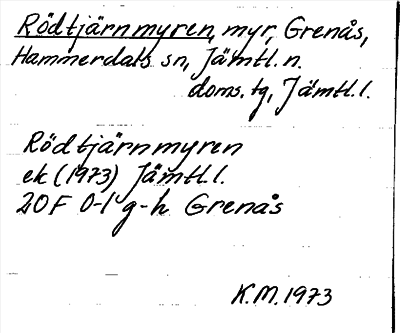 Rödtjärnmyren, myr, Grenås,
Hammerdals sn, Jämtl. n.
doms. tg, Jämtl. l.
Rödtjärnmyren
ek (1973) Jämtl. l.
20F 0-1 g-h Grenås
K.M. 1973